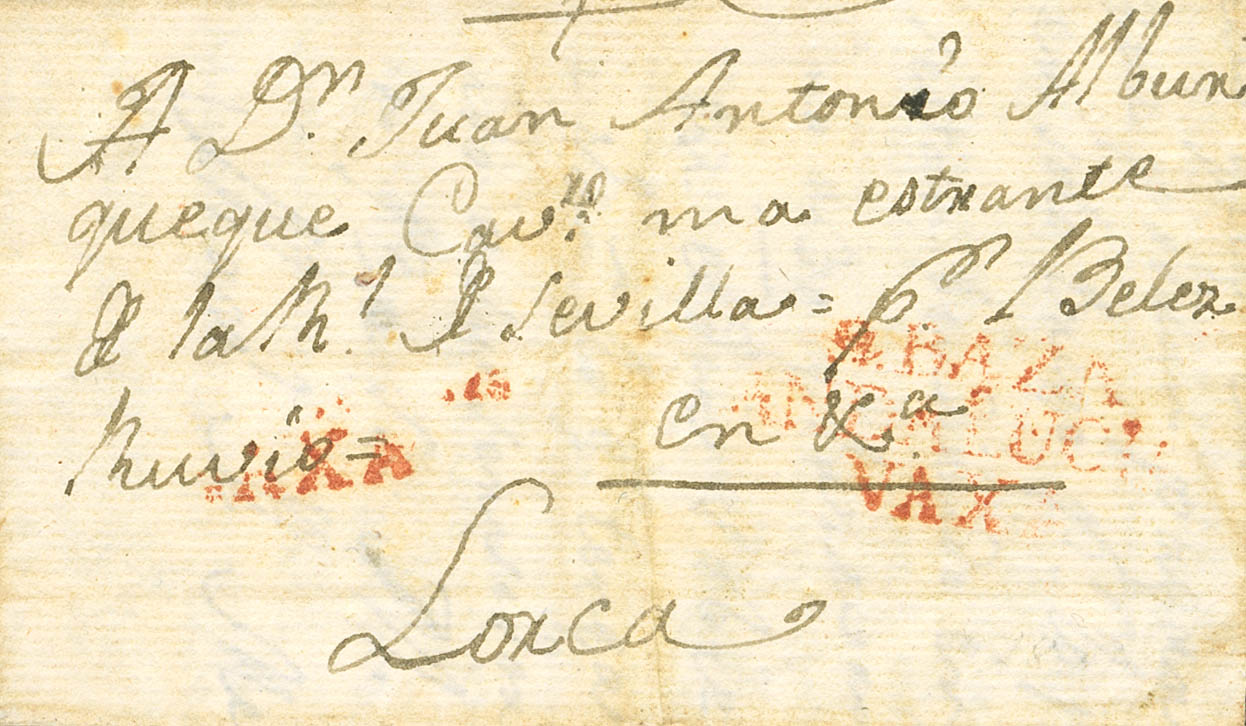 A Dn. Juan Antonio Albur
queque Cavro. ma estrante
de la Rl. de Sevilla = pr Belez
Ruvio = en &a.
Lorca
BAZA
ANDALUCIA
VAXA
VAXA